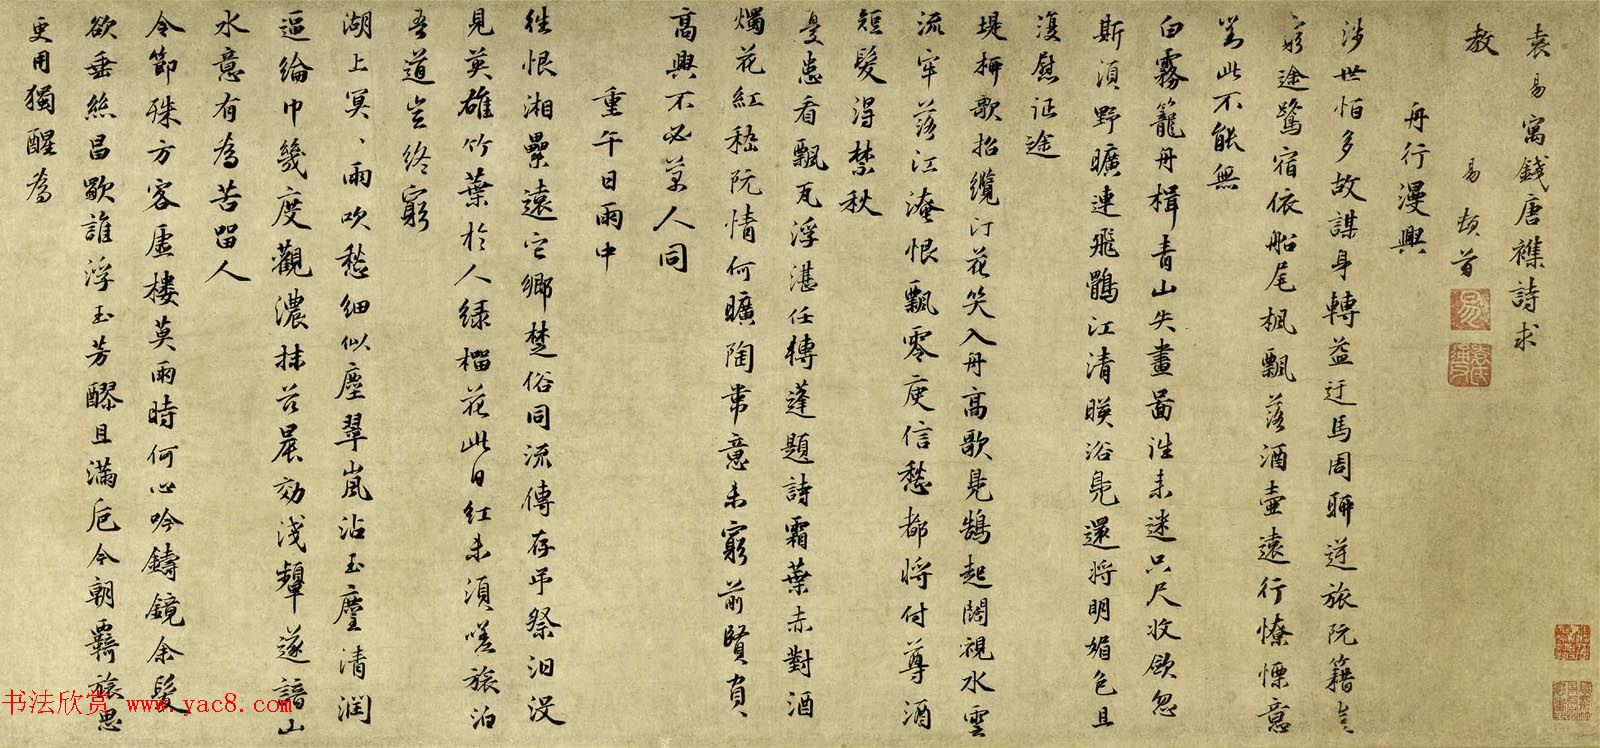 袁易寓錢唐襍詩求
教
易頓首
舟行漫興
涉世怕多故謀身轉益迂馬周聊逆旅阮籍豈
窮途鷺宿依船尾楓飄落酒壺遠行憭慄意
對此不能無
白霧籠舟楫青山失畫啚浩未迷只尺收欲忽
斯須野曠連飛鸛江清暎浴鳧還將明媚色且
復慰征途
堤柳歌招纜汀花笑入舟高歌見鵠起闊視水雲
流牢落江淹恨飄零庾信愁都將付尊酒
短髮淂禁秋
憂患看飄瓦浮湛任轉蓬題詩霜葉赤對酒
燭花紅嵇阮情何曠陶韋意未窮前賢負
高興不必萬人同
重午日雨中
往恨湘纍遠它鄉楚俗同流傳存弔祭汩沒
見英雄竹葉於人綠榴花此日紅未須嗟旅泊
吾道豈終窮
湖上冥、雨吹愁細似塵翠嵐沾玉麈清潤
逼綸巾幾度觀濃抹茲晨効淺顰遂諳山
水意有為苦留人
令節殊方客虛樓莫雨時何心吟鑄鏡余髮
欲垂絲昌歜誰浮玉芳醪且滿卮今朝羇旅思
更用獨醒為
书法欣赏 www.yac8.com